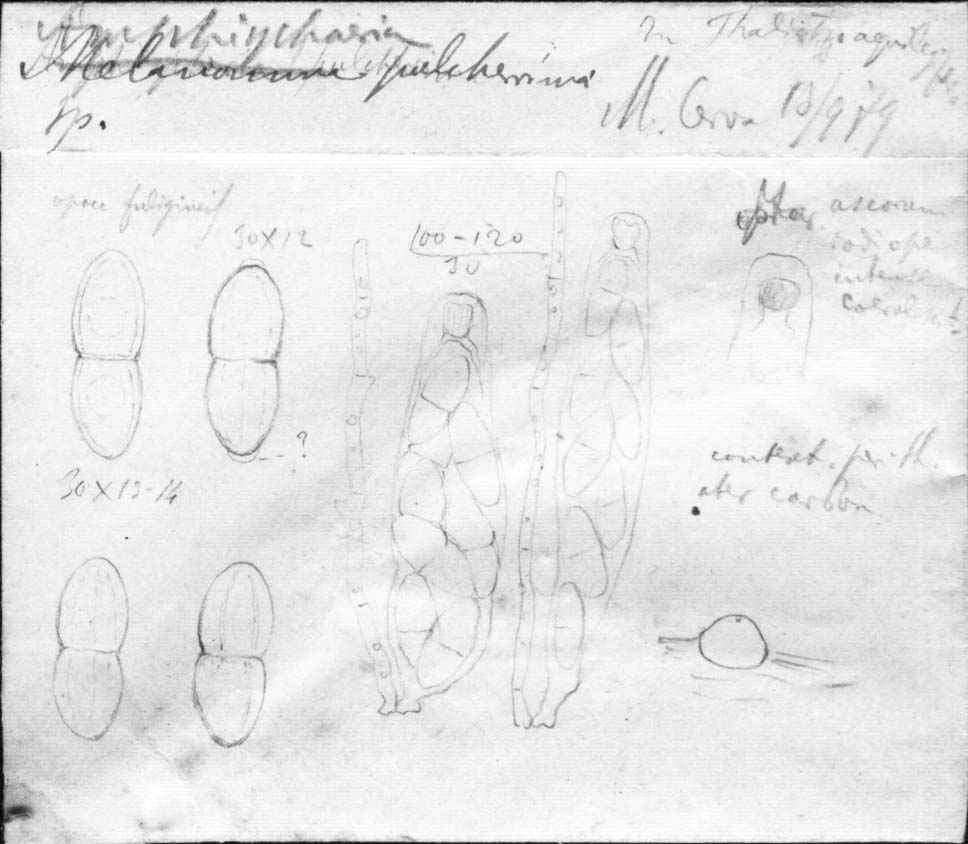 Amphisphaeria
Melanomma pulcherrima
sp.
In Thalictro aquilegifo
M. Cervo 13/9 79
opace fuliginei
30X12
100-120
30
ascorum
iodi ope
intense
coerulescit
?
30 X 13-14
context. perith.
ater carbon.